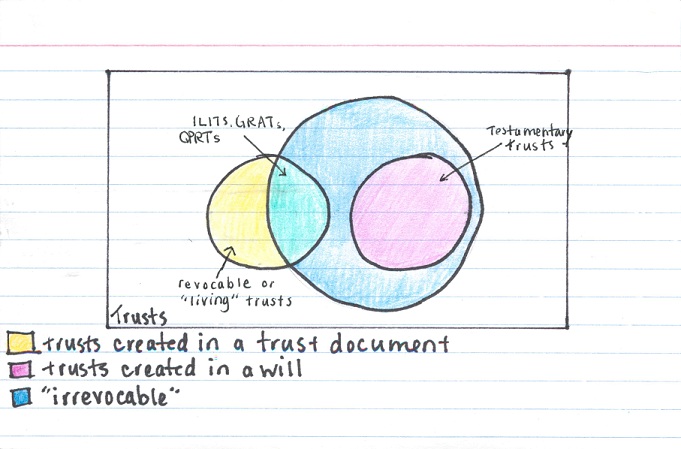 ILITS, GRATs,
QPRTs
Testamentary
trusts
revocable or
"living" trusts
Trusts
trusts created in a trust document
trusts created in a will
"irrevocable"